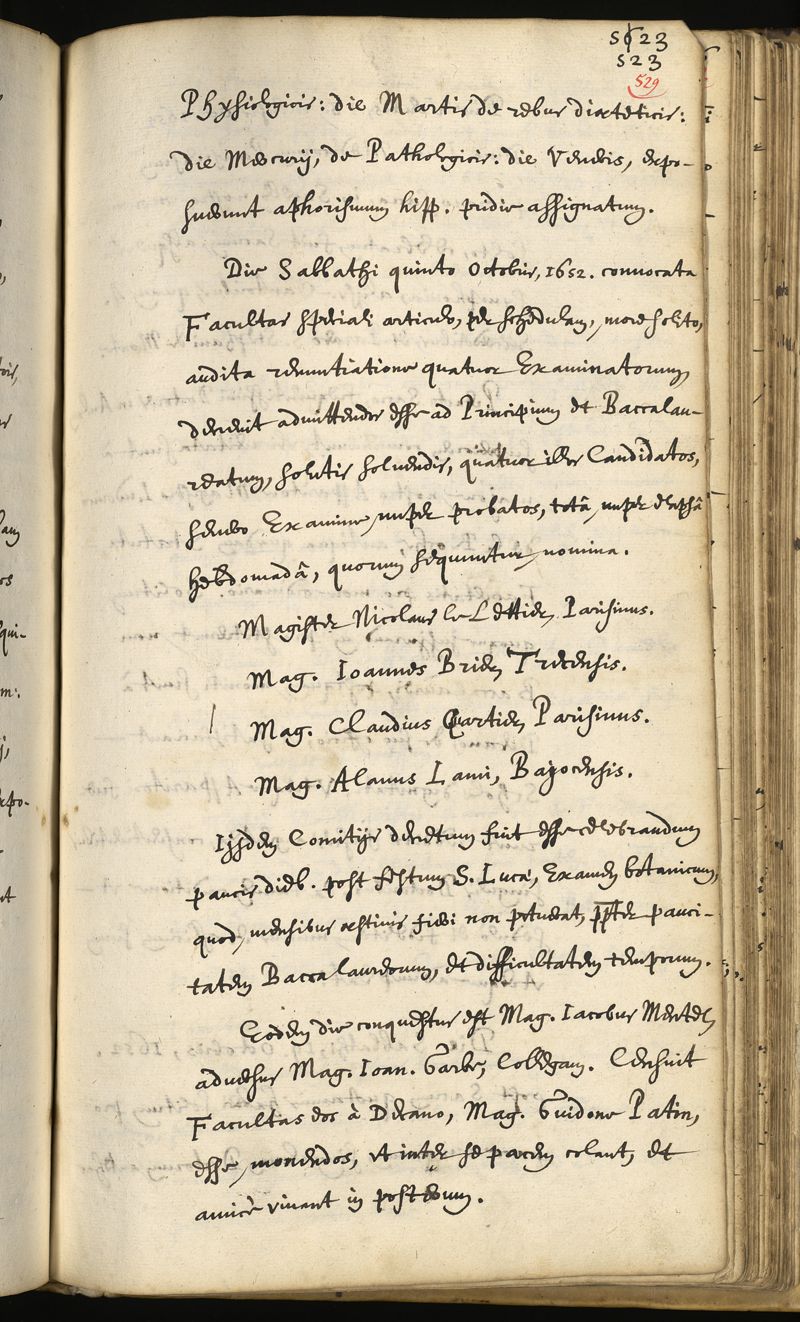 5623
523
529
Physiologicis: die Martis de rebus diæteticis:
die Mercurij, de Pathologicis: die Veneris, expo-
suerunt aphorismum hipp. pridie assignatum.
Die Sabbathi quinto Octobris, 1652. convocata
Facultas speciali articulo, per schedulam, more solito,
audita renuntiatione quatuor Examinatorum,
decrevit admittendos esse ad Principium et Baccalau-
reatum, solutis solvendis, quatuor illos Candidatos,
severo Examine nuper probatos, totâ nuper elapsâ
hebdomadâ, quorum sequuntur nomina.
Magister Nicolaus le Lettier, Parisinus.
Mag. Ioannes Brien, Trecensis.
Mag. Claudius Quartier, Parisinus.
Mag. Alanus Lami, Bajocensis.
Ijsdem Comitijs decretum fuit esse celebrandum
paucis dieb. post festum S. Lucæ, Examen botanicum,
quod mensibus æstivis fieri non potuerat, ppter pauci-
tatem Baccalaureorum, et difficultatem temporum.
Eodem die conquestus est Mag. Iacobus Mentel,
adversus Mag. Ioan. Garbe, Collegam. Censuit
Facultas eos à Decano, Mag. Guidone Patin,
esse monendos, ut inter se pacem colant, et
amicè vivant in posterum.